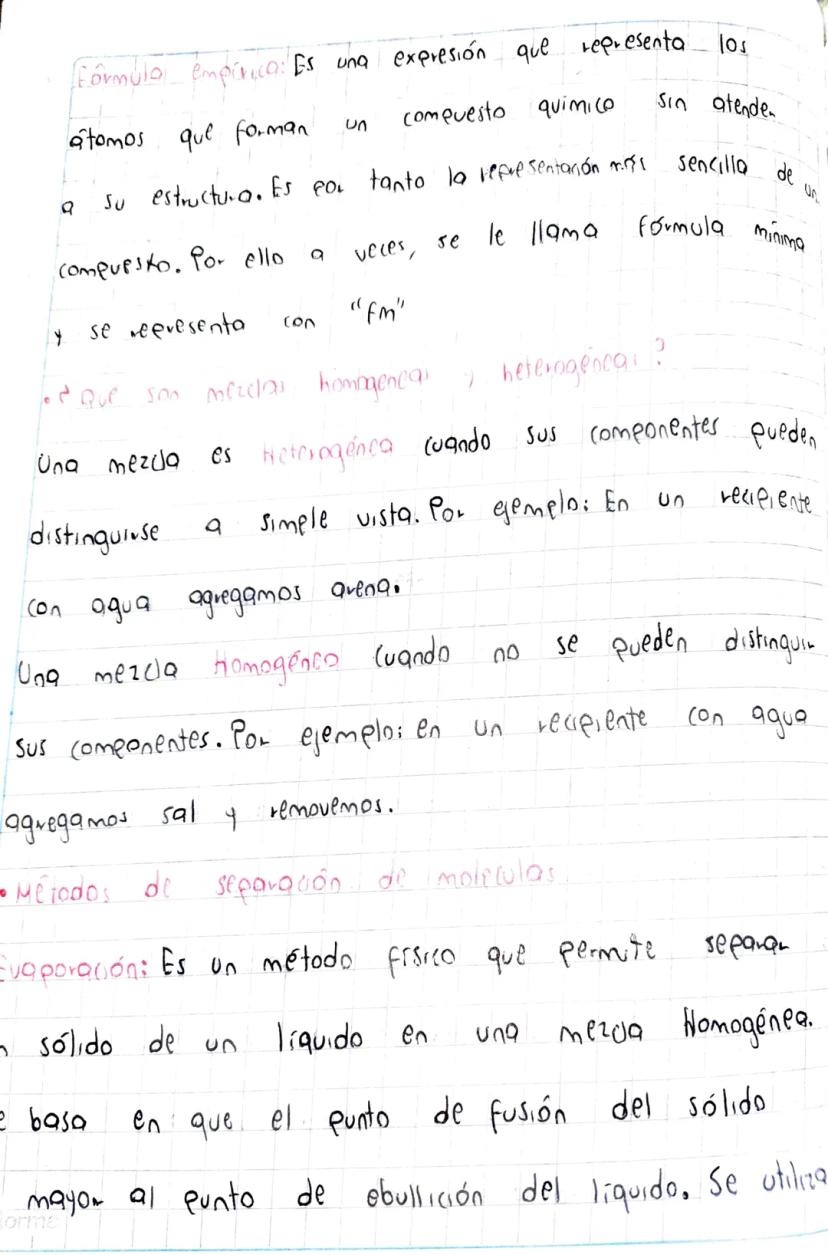 Fórmula empírica: Es una expresión que representa los
átomos que forman un compuesto químico sin atender
a su estructura. Es por tanto la representación más sencilla de un
compuesto. Por ello a veces, se le llama fórmula mínima
y se representa con "fm"
• ¿Que son mezclas homogeneas y heterogéneas?
Una mezcla es Heterogénea cuando sus componentes pueden
distinguirse a simple vista. Por ejemplo: En un recipiente
con agua agregamos arena.
Una mezcla Homogéneo cuando no se pueden distinguir
sus componentes. Por ejemplo: en un recipiente con agua
agregamos sal y removemos.
• Métodos de separación de moléculas
Evaporación: Es un método físico que permite separar
n sólido de un líquido en una mezcla Homogénea.
e basa en que el punto de fusión del sólido
mayor al punto de ebullición del líquido. Se utiliza
orma